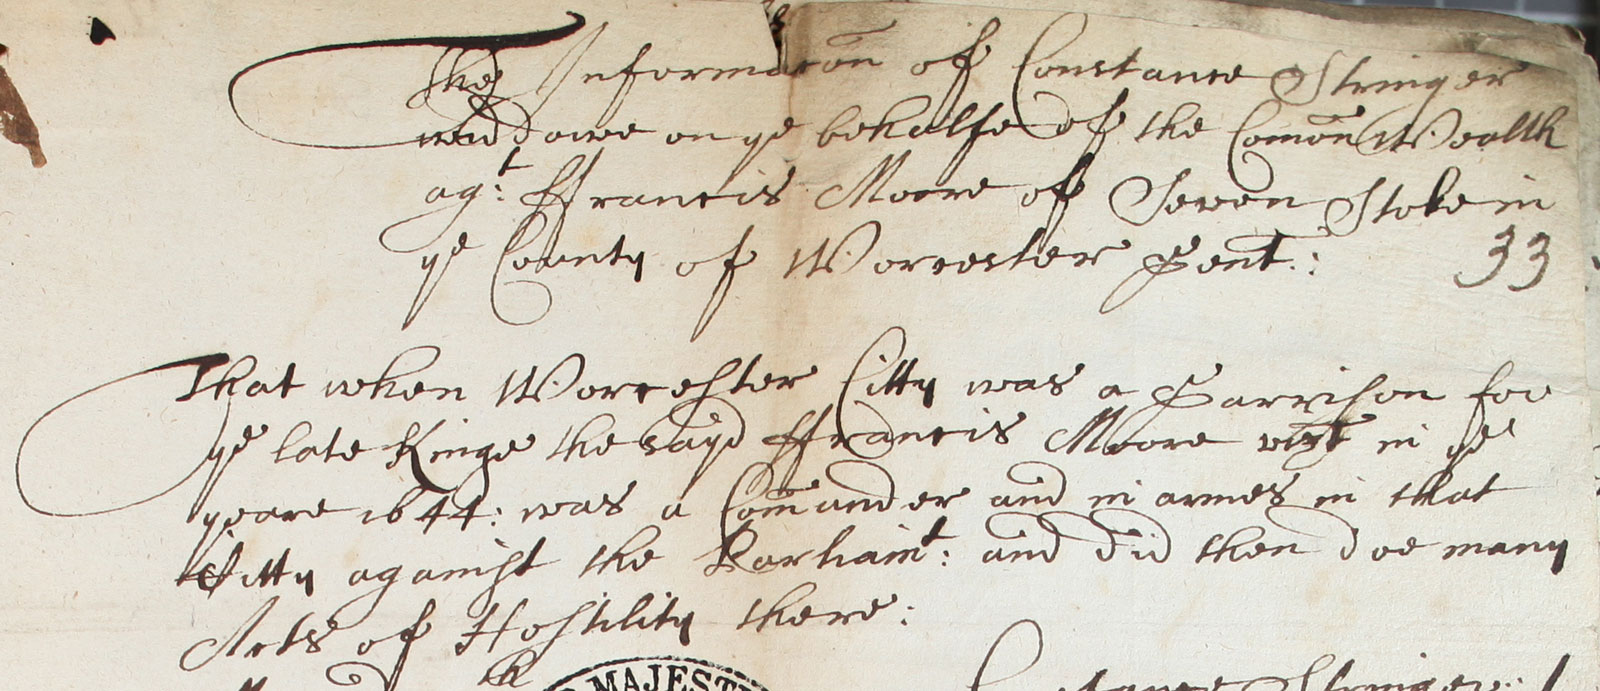 The Informacōn of Constance Stringer
widdowe on ye behalfe of the Com̄on Wealth
agt: Ffrancis Moore of Seven Stoke in
ye County of Worcester Gent.:
33
That when Worcester Citty was a Garrison for
ye late Kinge the sayd Ffrancis Moore vizt in ye
yeare 1644: was a Com̄ander and in armes in that
Citty against the Parliamt: and did then doe many
Acts of Hostility there:
MAJEST
Constance Stringer